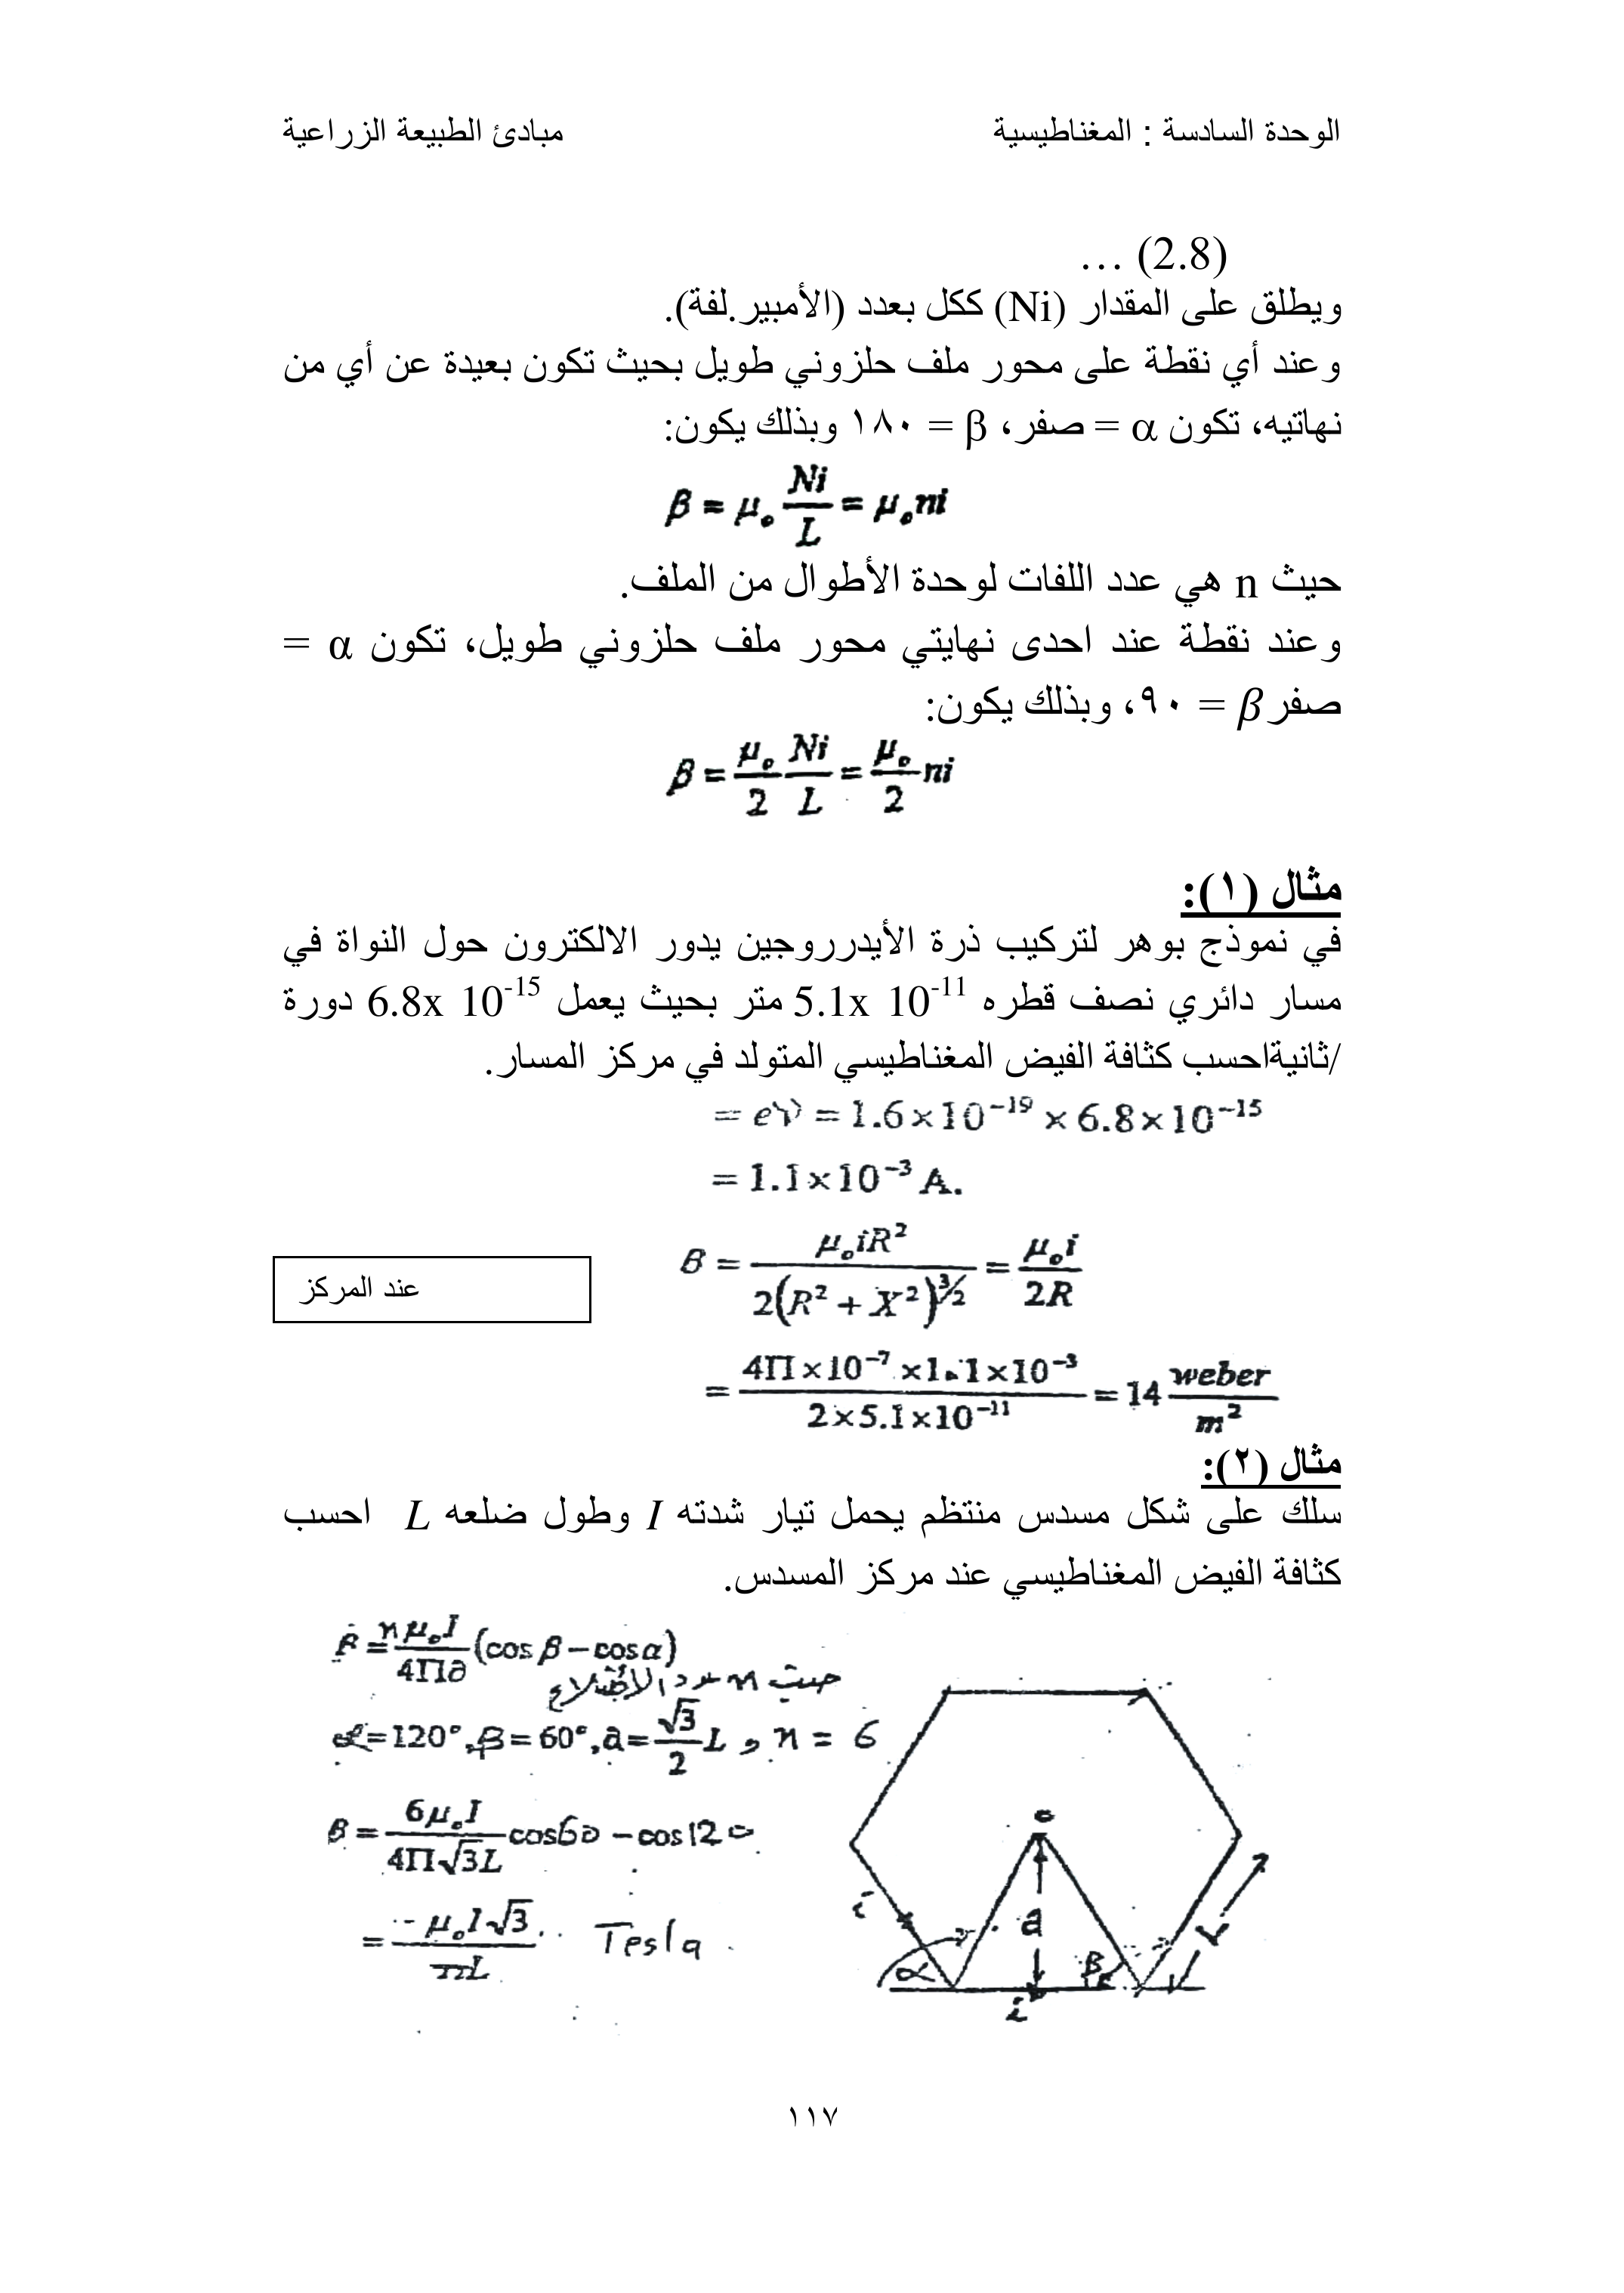 الوحدة السادسة : المغناطيسية مبادئ الطبيعة الزراعية
(2.8) …
ويطلق على المقدار (Ni) ككل بعدد (الأمبير.لفة).
وعند أي نقطة على محور ملف حلزوني طويل بحيث تكون بعيدة عن أي من
نهاتيه، تكون α = صفر، β = ١٨٠ وبذلك يكون:
β = μ₀ Ni/L = μ₀ni
حيث n هي عدد اللفات لوحدة الأطوال من الملف.
وعند نقطة عند احدى نهايتي محور ملف حلزوني طويل، تكون α =
صفر β = ٩٠، وبذلك يكون:
β = μ₀/2 Ni/L = μ₀/2 ni
مثال (١):
في نموذج بوهر لتركيب ذرة الأيدرروجين يدور الالكترون حول النواة في
مسار دائري نصف قطره 5.1x 10⁻¹¹ متر بحيث يعمل 6.8x 10⁻¹⁵ دورة
/ثانيةاحسب كثافة الفيض المغناطيسي المتولد في مركز المسار.
= eν = 1.6×10⁻¹⁹ × 6.8×10⁻¹⁵
= 1.1×10⁻³ A.
β = μ₀iR² / 2(R² + X²)^3/2 = μ₀i / 2R
عند المركز
= 4Π×10⁻⁷ ×1.1×10⁻³ / 2×5.1×10⁻¹¹ = 14 weber / m²
مثال (٢):
سلك على شكل مسدس منتظم يحمل تيار شدته I وطول ضلعه L احسب
كثافة الفيض المغناطيسي عند مركز المسدس.
β = nμ₀I / 4Πa (cos β – cos α)
حيث n عدد الاضلاع
α = 120°, β = 60°, a = √3/2 L , n = 6
β = 6μ₀I / 4Π√3L cos60 – cos120
= μ₀I√3 / ΠL Tesla
o
a
i
α
β
i
L
١١٧